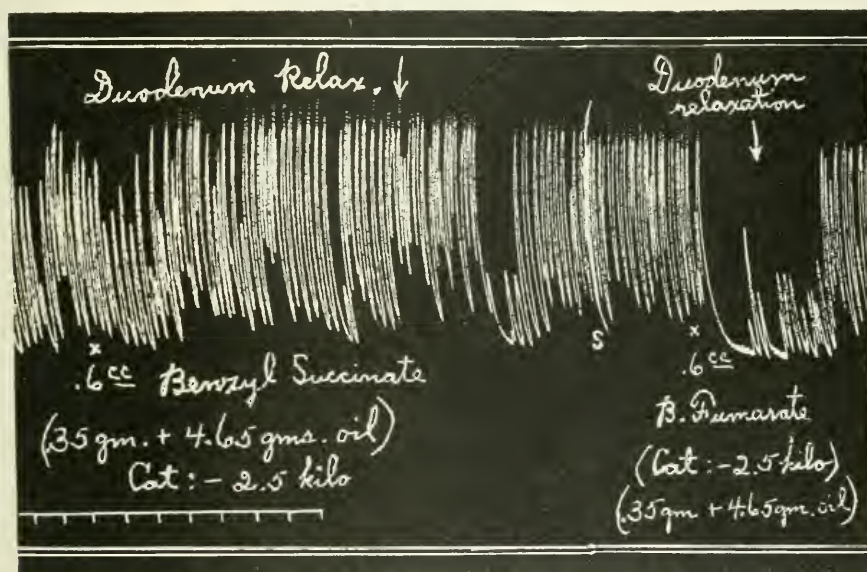 Duodenum Relax. ↓
Duodenum
relaxation
↓
x
.6 cc Benzyl Succinate
(.35 gm. + 4.65 gms. oil)
Cat:- 2.5 kilo
S
x
.6 cc
B. Fumarate
(Cat:- 2.5 kilo)
(.35 gm + 4.65 gm. oil)